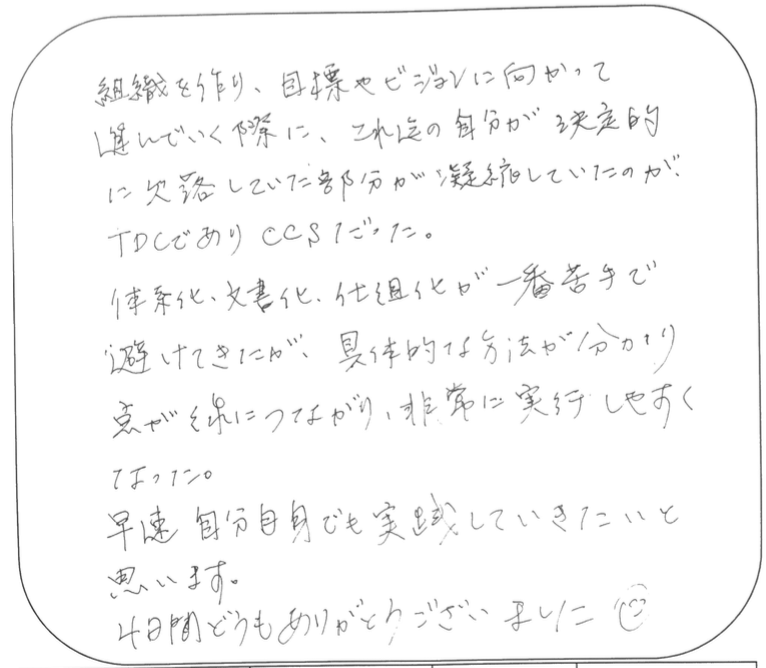 組織を作り、目標やビジョンに向かって
進んでいく際に、これ迄の自分が決定的
に欠落していた部分が凝縮していたのが、
TDCであり CCSだった。
体系化、文書化、仕組化が一番苦手で
避けてきたが、具体的な方法が分かり
点が線につながり、非常に実行しやすく
なった。
早速 自分自身でも実践していきたいと
思います。
4日間どうもありがとうございました